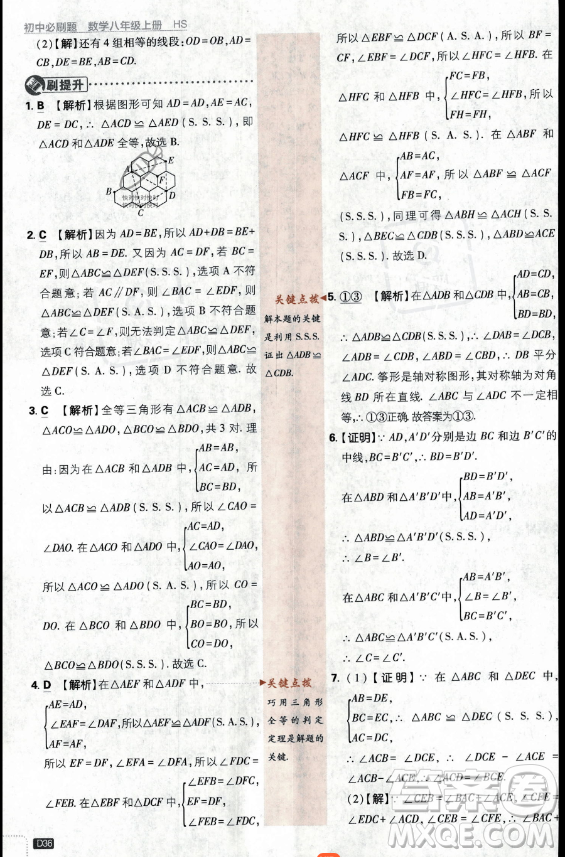 初中必刷题 数学八年级上册 HS
(2)【解】还有 4 组相等的线段：OD=OB，AD=
CD，DE=BE，AB=CD.
刷提升
1. B 【解析】根据图形可知 AD=AD，AE=AC，
DE=DC，∴ △ACD≌△AED(S.S.S.)，即
△ACD 和△ADE 全等，故选 B.
A
E
D
B
C
2. C 【解析】因为 AD=BE，所以 AD+DB=BE+
DB，所以 AB=DE. 又因为 AC=DF，若 BC=
EF，则△ABC≌△DEF(S.S.S.)，选项 A 不符
合题意；若 AC∥DF，则∠BAC=∠EDF，则
△ABC≌△DEF(S.A.S.)，选项 B 不符合题
意；若∠C=∠F，则无法判定△ABC≌△DEF，
选项 C 符合题意；若∠BAC=∠EDF，则△ABC≌
△DEF(S.A.S.)，选项 D 不符合题意. 故
选 C.
3. C 【解析】全等三角形有△ACB≌△ADB，
△ACO≌△ADO，△BCO≌△BDO，共 3 对. 理
由：因为在△ACB 和△ADB 中，
AB=AB，
AC=AD，所
BC=BD，
以△ACB≌△ADB(S.S.S.)，所以∠CAO=
∠DAO. 在△ACO 和△ADO 中，
AC=AD，
∠CAO=∠DAO，
AO=AO，
所以△ACO≌△ADO(S.A.S.)，所以 CO=
DO. 在△BCO 和△BDO 中，
BC=BD，
BO=BO，所以
CO=DO，
△BCO≌△BDO(S.S.S.). 故选 C.
4. D 【解析】在△AEF 和△ADF 中，
AE=AD，
∠EAF=∠DAF，所以△AEF≌△ADF(S.A.S.)，
AF=AF，
所以 EF=DF，∠EFA=∠DFA，所以∠FDC=
∠FEB. 在△EFB 和△DFC 中，
∠EFB=∠DFC，
EF=DF，
∠FEB=∠FDC，
D36
关键点拨
解本题的关键
是利用 S.S.S.
证出△ADB≌
△CDB.
关键点拨
巧用三角形
全等的判定
定理是解题的
关键.
∠HFC=∠HFB. 在
△HFC 和△HFB 中，
FC=FB，
∠HFC=∠HFB，所以
FH=FH，
△HFC≌△HFB(S.A.S.). 在△ABF 和
△ACF 中，
AB=AC，
AF=AF，所以△ABF≌△ACF
FB=FC，
(S.S.S.)，同理可得△ABH≌△ACH(S.S.S.)，
△BEC≌△CDB(S.S.S.)，△ABD≌△ACE
(S.S.S.). 故选 D.
5. ①③ 【解析】在△ADB 和△CDB 中，
AD=CD，
AB=CB，
BD=BD，
∴ △ADB≌△CDB(S.S.S.)，∴ ∠ADB=
∠CDB，∠ABD=∠CBD，∴ DB 平分
∠ADC. 筝形是轴对称图形，其对称轴为对角
线 BD 所在直线. ∠ABC 与∠ADC 不一定相
等，∴ ①③正确. 故答案为①③.
6. 【证明】∵ AD，A′D′分别是 BC 和边 B′C′的
中线，BC=B′C′，∴ BD=B′D′.
在△ABD 和△A′B′D′中，
BD=B′D′，
AB=A′B′，
AD=A′D′，
∴ △ABD≌△A′B′D′(S.S.S.)，
∴ ∠B=∠B′.
在△ABC 和△A′B′C′中，
AB=A′B′，
∠B=∠B′，
BC=B′C′，
∴ △ABC≌△A′B′C′(S.A.S.).
7. (1)【证明】∵ 在△ABC 和△DEC 中，
AB=DE，
BC=EC，∴ △ABC≌△DEC(S.S.S.)，
AC=DC，
∴ ∠ACB=∠DCE，∴ ∠DCE-∠ACE=
∠ACB-∠ACE，∴ ∠ACD=∠BCE.
(2)【解】∵ ∠CEB=∠BAC+∠ACE，∠CFE=
∠EDC+∠ACD，∠ACE=∠ACD，∠BAC=
MXQE.COM